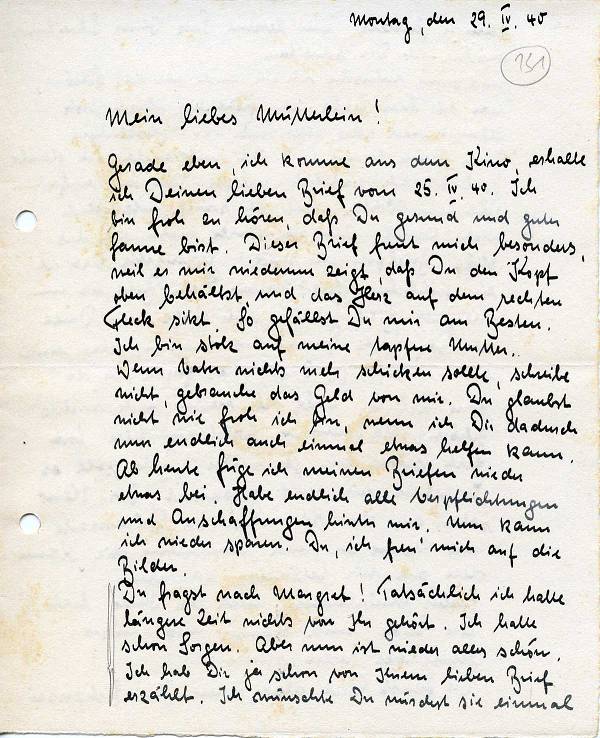 Montag, den 29. IV. 40
151
Mein liebes Mütterlein!
Gerade eben, ich komme aus dem Kino, erhalte
ich Deinen lieben Brief vom 25. IV. 40. Ich
bin froh zu hören, daß Du gesund und guter
Laune bist. Dieser Brief freut mich besonders,
weil er mir wiederum zeigt, daß Du den Kopf
oben behältst, und das Herz auf dem rechten
Fleck sitzt. So gefällst Du mir am Besten.
Ich bin stolz auf meine tapfere Mutter.
Wenn Vater nichts mehr schicken sollte, schreibe
nicht, gebrauche das Geld von mir. Du glaubst
nicht wie froh ich bin, wenn ich Dir dadurch
nun endlich auch einmal etwas helfen kann.
Ab heute füge ich meinen Briefen wieder
etwas bei. Habe endlich alle Verpflichtungen
und Anschaffungen hinter mir. Nun kann
ich wieder sparen. Du, ich freu' mich auf die
Bilder.
Du fragst nach Margret! Tatsächlich ich hatte
längere Zeit nichts von Ihr gehört. Ich hatte
schon Sorgen. Aber nun ist wieder alles schön.
Ich hab Dir ja schon von Ihrem lieben Brief
erzählt. Ich wünschte Du würdest sie einmal